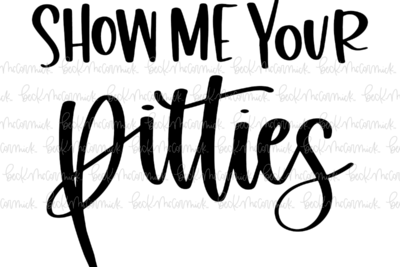 SHOW ME YOUR
pitties